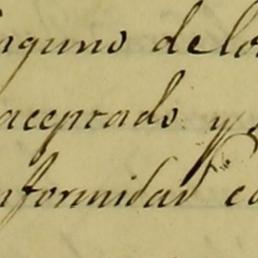 inguno de lo
aceptado y
nformidad co